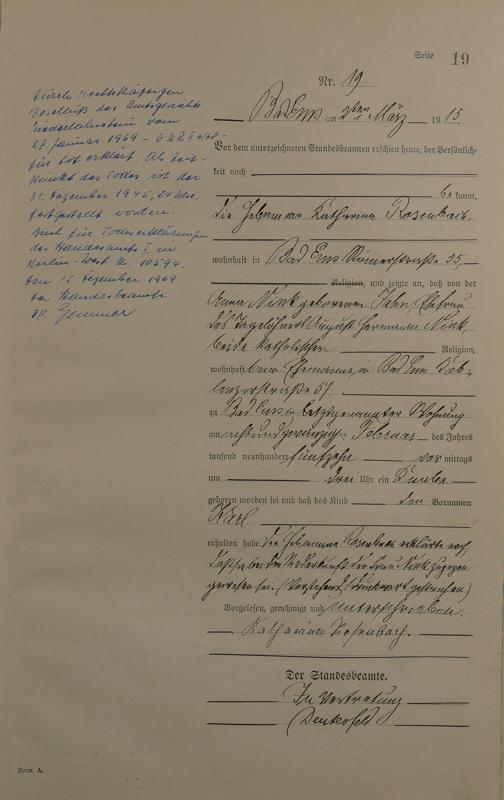 Seite 19
Nr. 19.
Bad Ems am 2ten März 1915.
Vor dem unterzeichneten Standesbeamten erschien heute, der Persönlich-
keit nach
bekannt,
die Hebamme Katharina Rosenbach,
wohnhaft in Bad Ems Römerstraße 35,
Religion, und zeigte an, daß von der
Anna Nink geborenen Jahn, Ehefrau
des Tagelöhners August Hermann Nink,
beide katholischer Religion,
wohnhaft beim Ehemanne, in Bad Ems Kob-
lenzerstraße 51
zu Bad Ems in letztgenannter Wohnung
am achtundzwanzigten Februar des Jahres
tausend neunhundert fünfzehn vormittags
um drei Uhr ein Knabe
geboren worden sei und daß das Kind den Vornamen
Karl
erhalten habe. Die Hebamme Rosenbach erklärte noch,
daß sie bei der Niederkunft der Frau Nink zugegen
gewesen sei. (Vorstehend 1 Druckwort gestrichen)
Vorgelesen, genehmigt und unterschrieben.
Katharina Rosenbach.
Der Standesbeamte.
In Vertretung
Durch rechtskräftigen
Beschluß des Amtsgerichts
Niederlahnstein vom
27. Januar 1969 -
für tot erklärt. Als Zeit-
punkt des Todes ist der
31. Dezember 1945, 24 Uhr,
festgestellt worden.
Buch für Todeserklärungen
des Standesamts I in
Berlin-West Nr. 10594.
Den 15. Dezember 1969
Der Standesbeamte
Form. A.